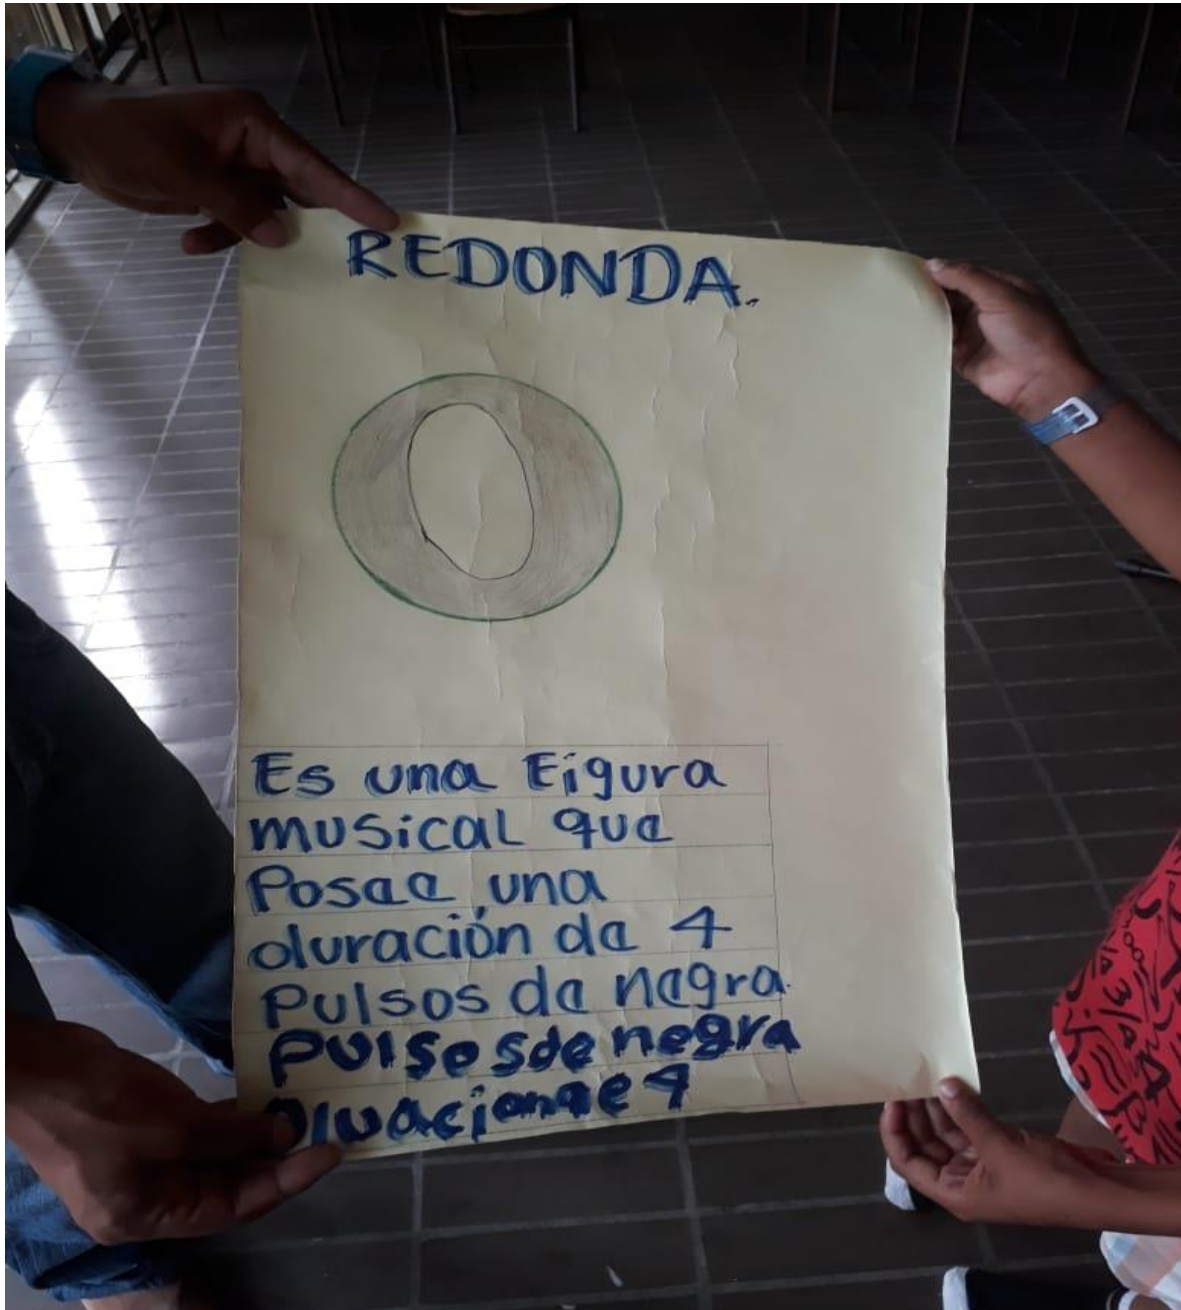 REDONDA.
Es una Figura
musical que
Posee una
duración de 4
Pulsos de negra.
Pulsos de negra
Diuacionde 4